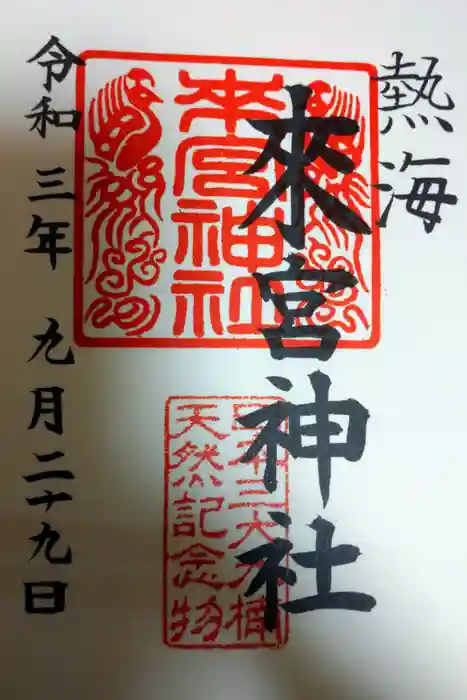 熱海
來宮神社
來宮神社
日本三大大楠
天然記念物
令和三年九月二十九日